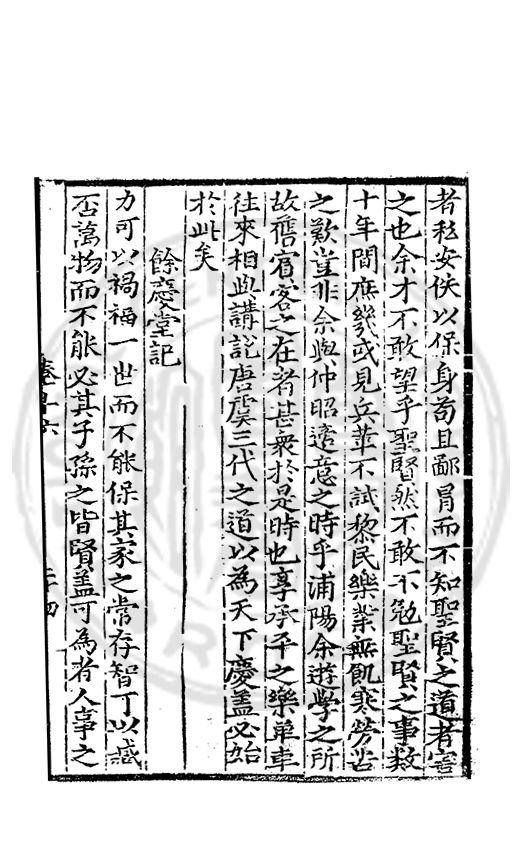 者苟安佚以保身苟且鄙冐而不知聖賢之道者害
之也余才不敢望乎聖賢然不敢不勉聖賢之事数
十年間庶幾或見兵革不試黎民樂業無飢寒劳苦
之歎豈非余與仲昭適意之時乎浦陽余遊學之所
故舊賔客之在者甚衆於是時也享承平之樂單車
往來相與講説唐虞三代之道以為天下慶盖必始
於此矣
餘慶堂記
力可以禍福一世而不能保其家之常存智可以惑
否萬物而不能必其子孫之皆賢盖可為者人事之